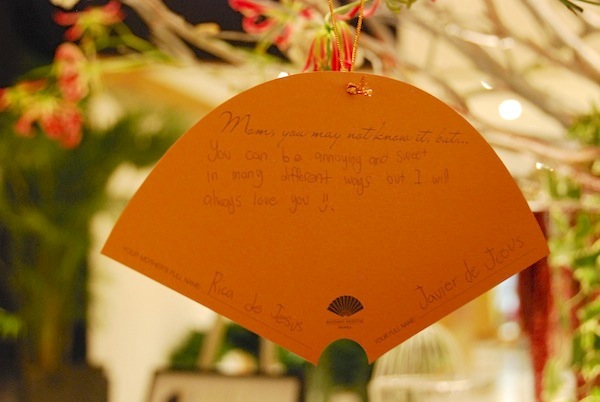 Mom, you may not know it, but...
You can be annoying and sweet
in many different ways but I will
always love you !!.
YOUR MOTHER'S FULL NAME
Rica de Jesus
YOUR FULL NAME
Javier de Jesus